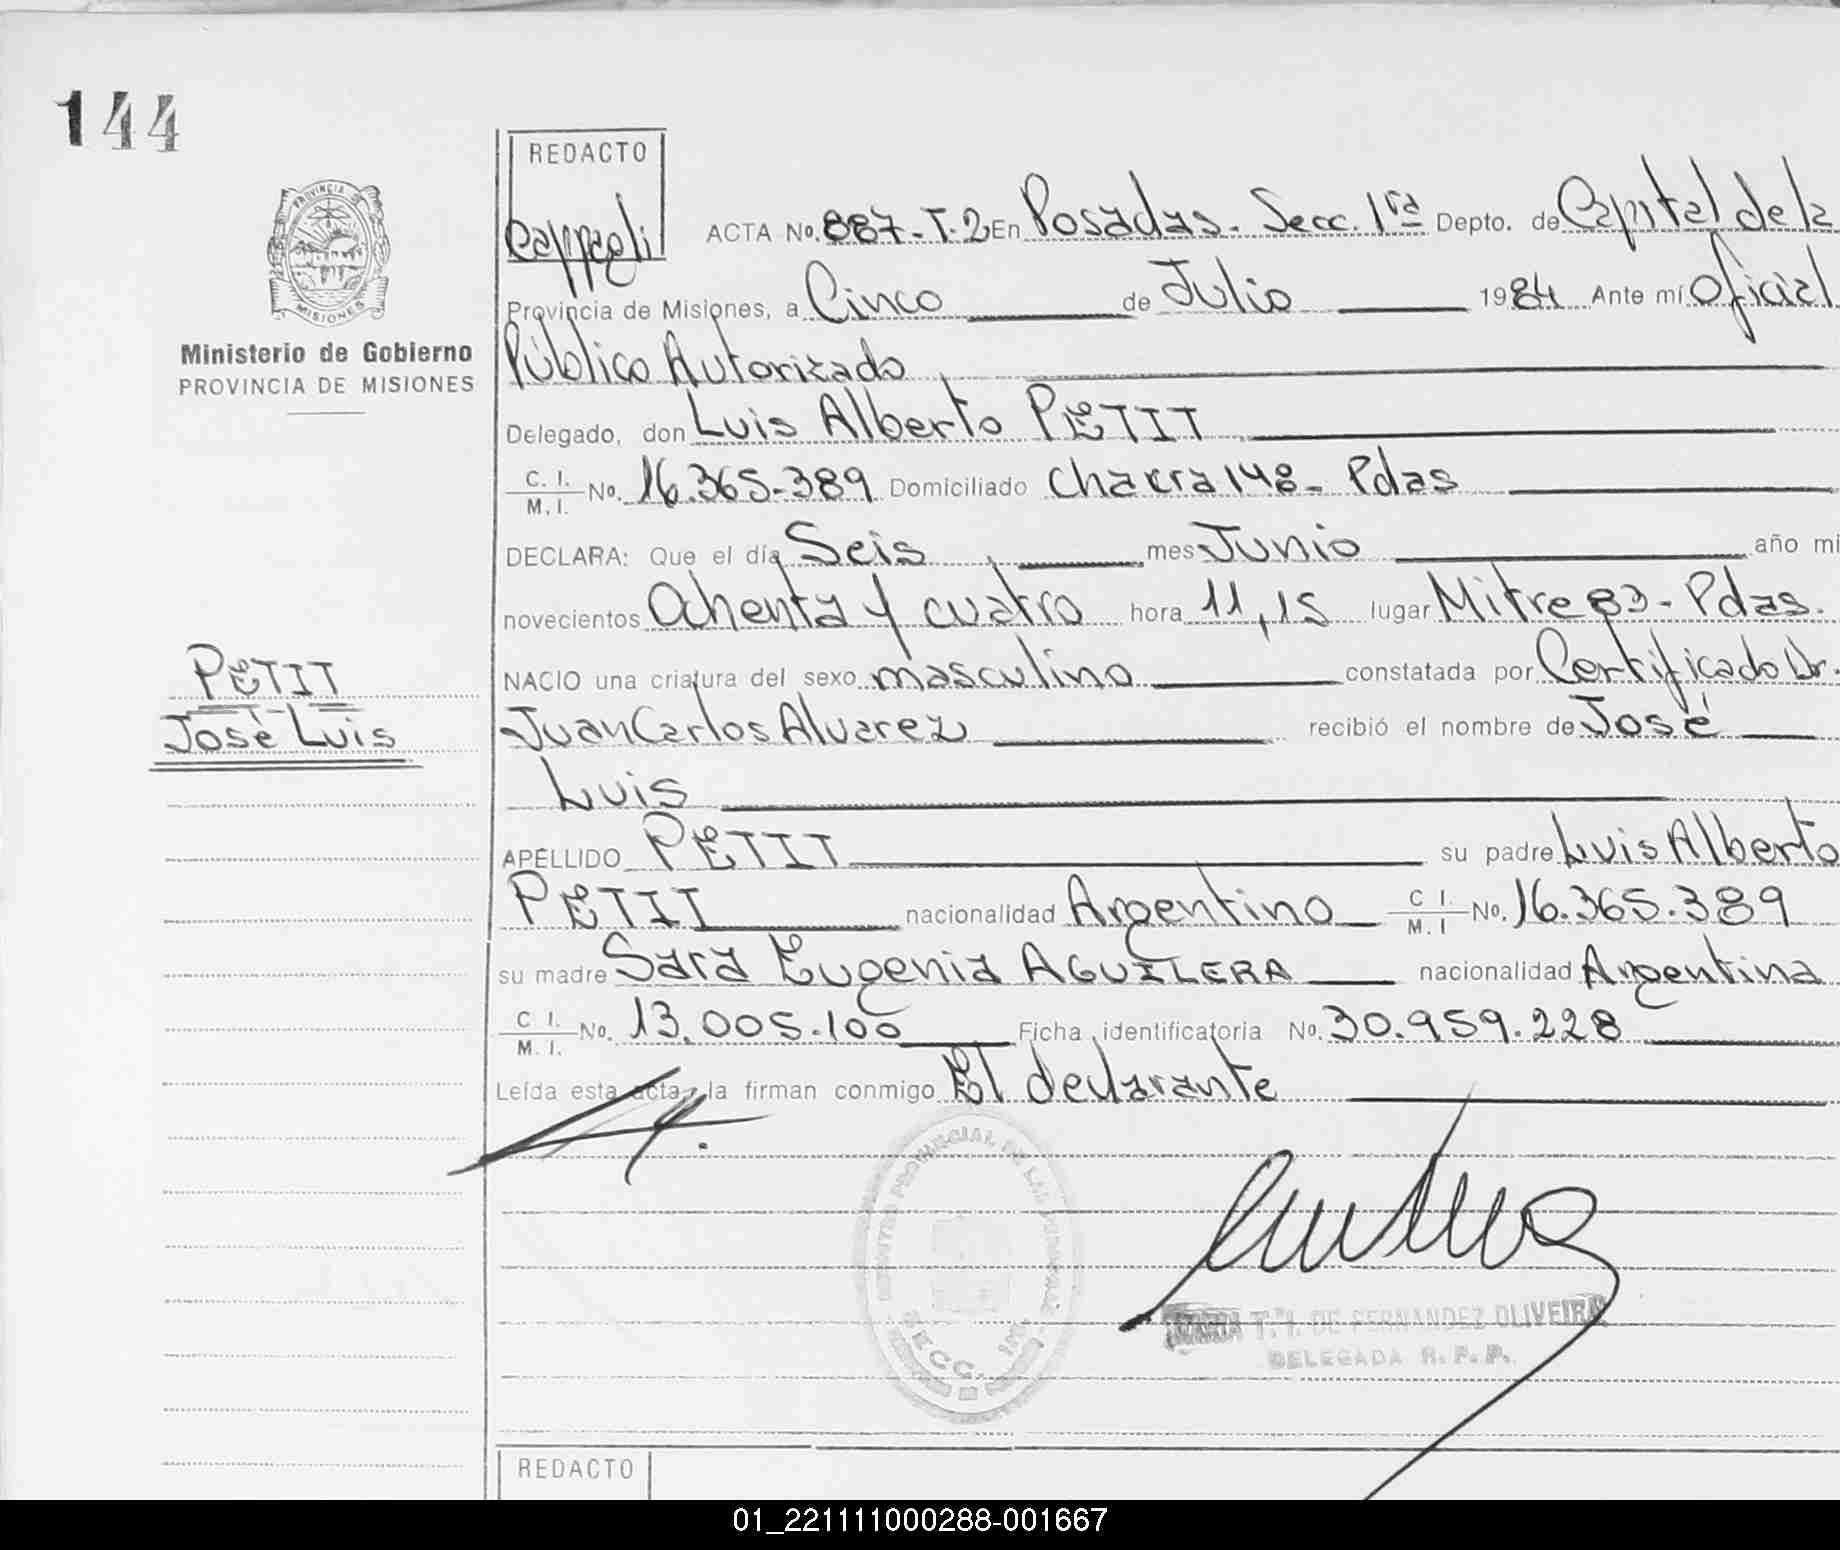 144
REDACTO
Cappagli
PROVINCIA DE
MISIONES
Ministerio de Gobierno
PROVINCIA DE MISIONES
ACTA No. 887-T.2 En Posadas. Secc. 1ra Depto. de Capital de la
Provincia de Misiones, a Cinco de Julio 1984 Ante mí Oficial
Público Autorizado
Delegado, don Luis Alberto PETIT
C. I.
M. I. No. 16.365.389 Domiciliado Chacra 148 - Pdas
DECLARA: Que el día Seis mes Junio año mi
novecientos Ochenta y cuatro hora 11,15 lugar Mitre 83 - Pdas.
NACIO una criatura del sexo masculino constatada por Certificado Dr.
PETIT
José Luis
Juan Carlos Alvarez recibió el nombre de José
Luis
APELLIDO PETIT su padre Luis Alberto
PETIT nacionalidad Argentino C I.
M. I No. 16.365.389
su madre Sara Eugenia AGUILERA nacionalidad Argentina
C I.
M. I. No. 13.005.100 Ficha identificatoria No. 30.959.228
Leída esta acta, la firman conmigo El declarante
PROVINCIAL DE LAS PERSONAS
SECC. 1ra.
T. I. DE FERNANDEZ OLIVEIRA
DELEGADA R. P. P.
REDACTO
01_221111000288-001667